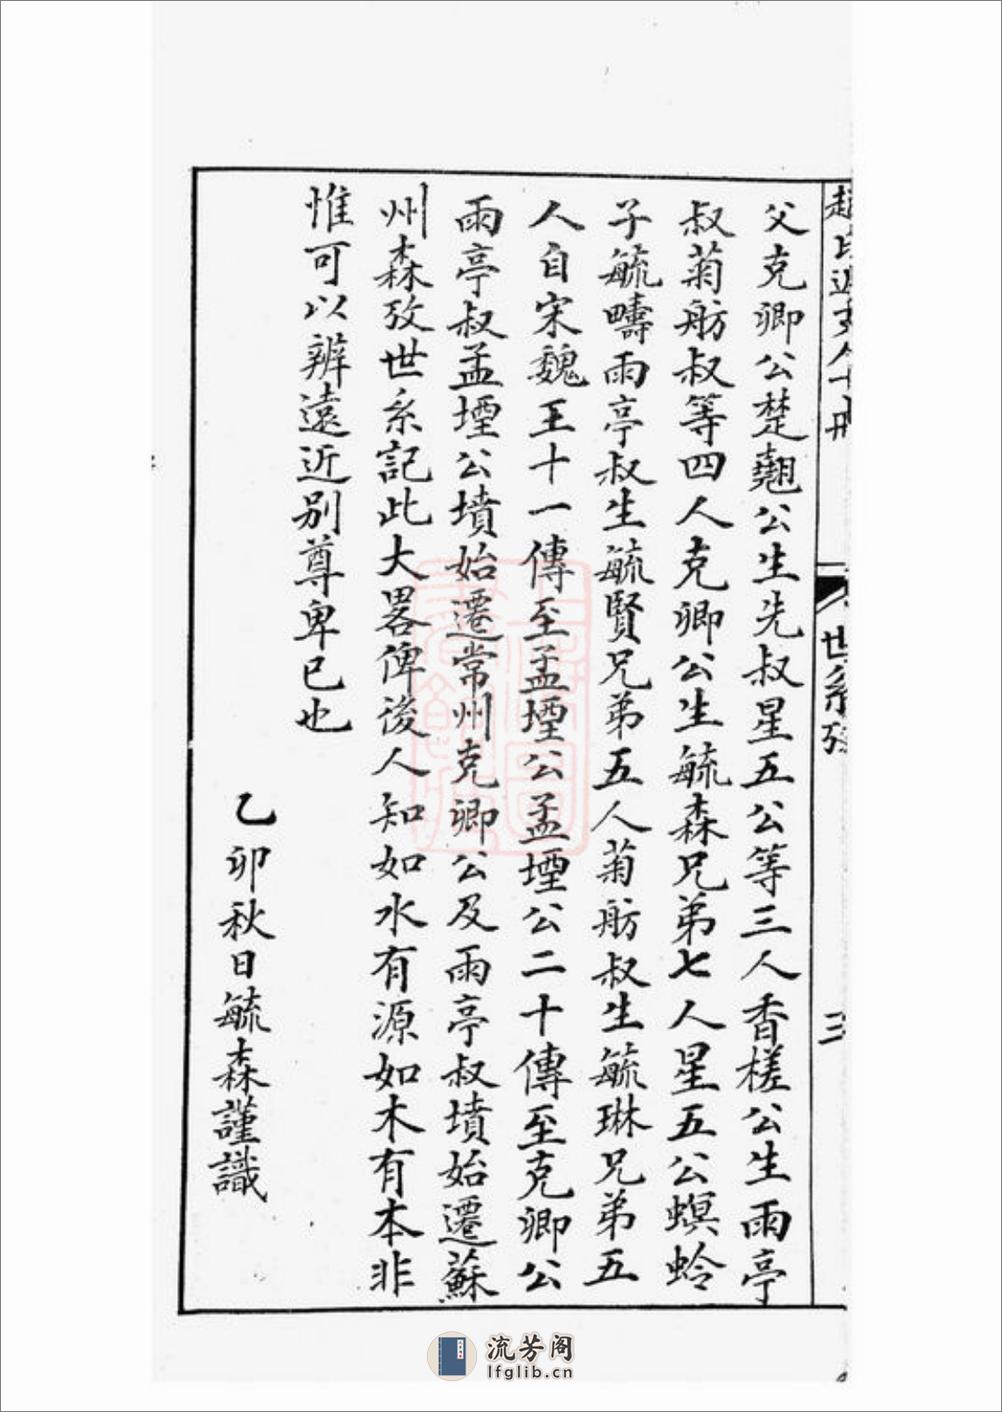 父克卿公楚翹公生先叔星五公等三人香槎公生雨亭
叔菊舫叔等四人克卿公生毓森兄弟七人星五公螟蛉
子毓疇雨亭叔生毓賢兄弟五人菊舫叔生毓琳兄弟五
人自宋魏王十一傳至孟堙公孟堙公二十傳至克卿公
雨亭叔孟堙公墳始遷常州克卿公及雨亭叔墳始遷蘇
州森攷世系記此大畧俾後人知如水有源如木有本非
惟可以辨遠近別尊卑已也
乙卯秋日毓森謹識
世系攷
三
流芳阁
lfglib.cn